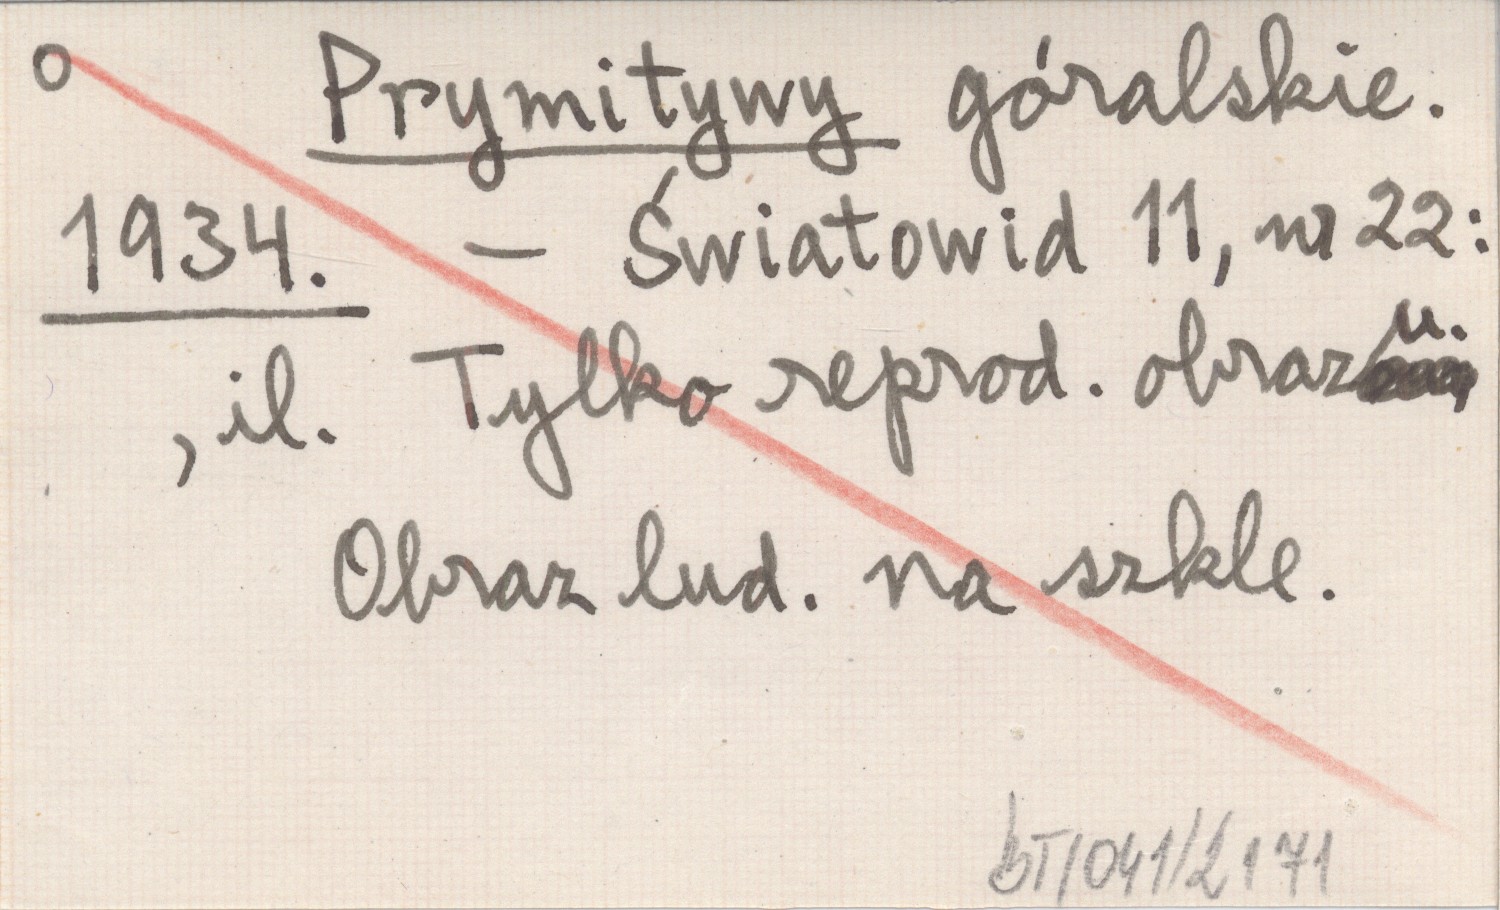 o Prymitywy góralskie.
1934. – Światowid 11, nr 22:
, il. Tylko reprod. obrazu.
Obraz lud. na szkle.
bT/041/2171